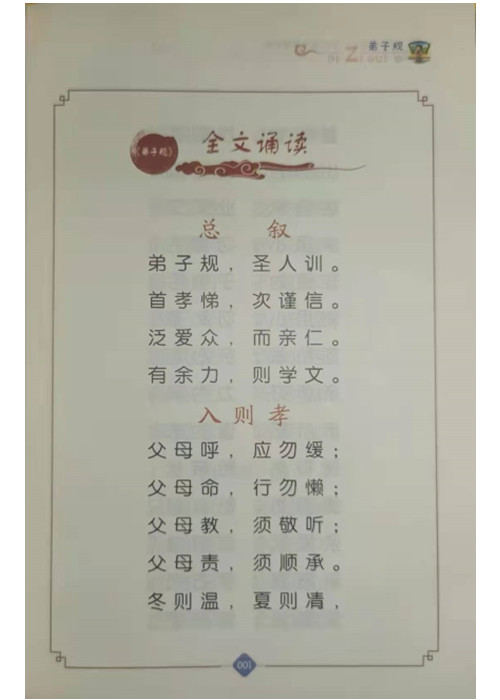 弟子规
《弟子规》
全文诵读
总 叙
弟子规，圣人训。
首孝悌，次谨信。
泛爱众，而亲仁。
有余力，则学文。
入则孝
父母呼，应勿缓；
父母命，行勿懒；
父母教，须敬听；
父母责，须顺承。
冬则温，夏则凊，
001